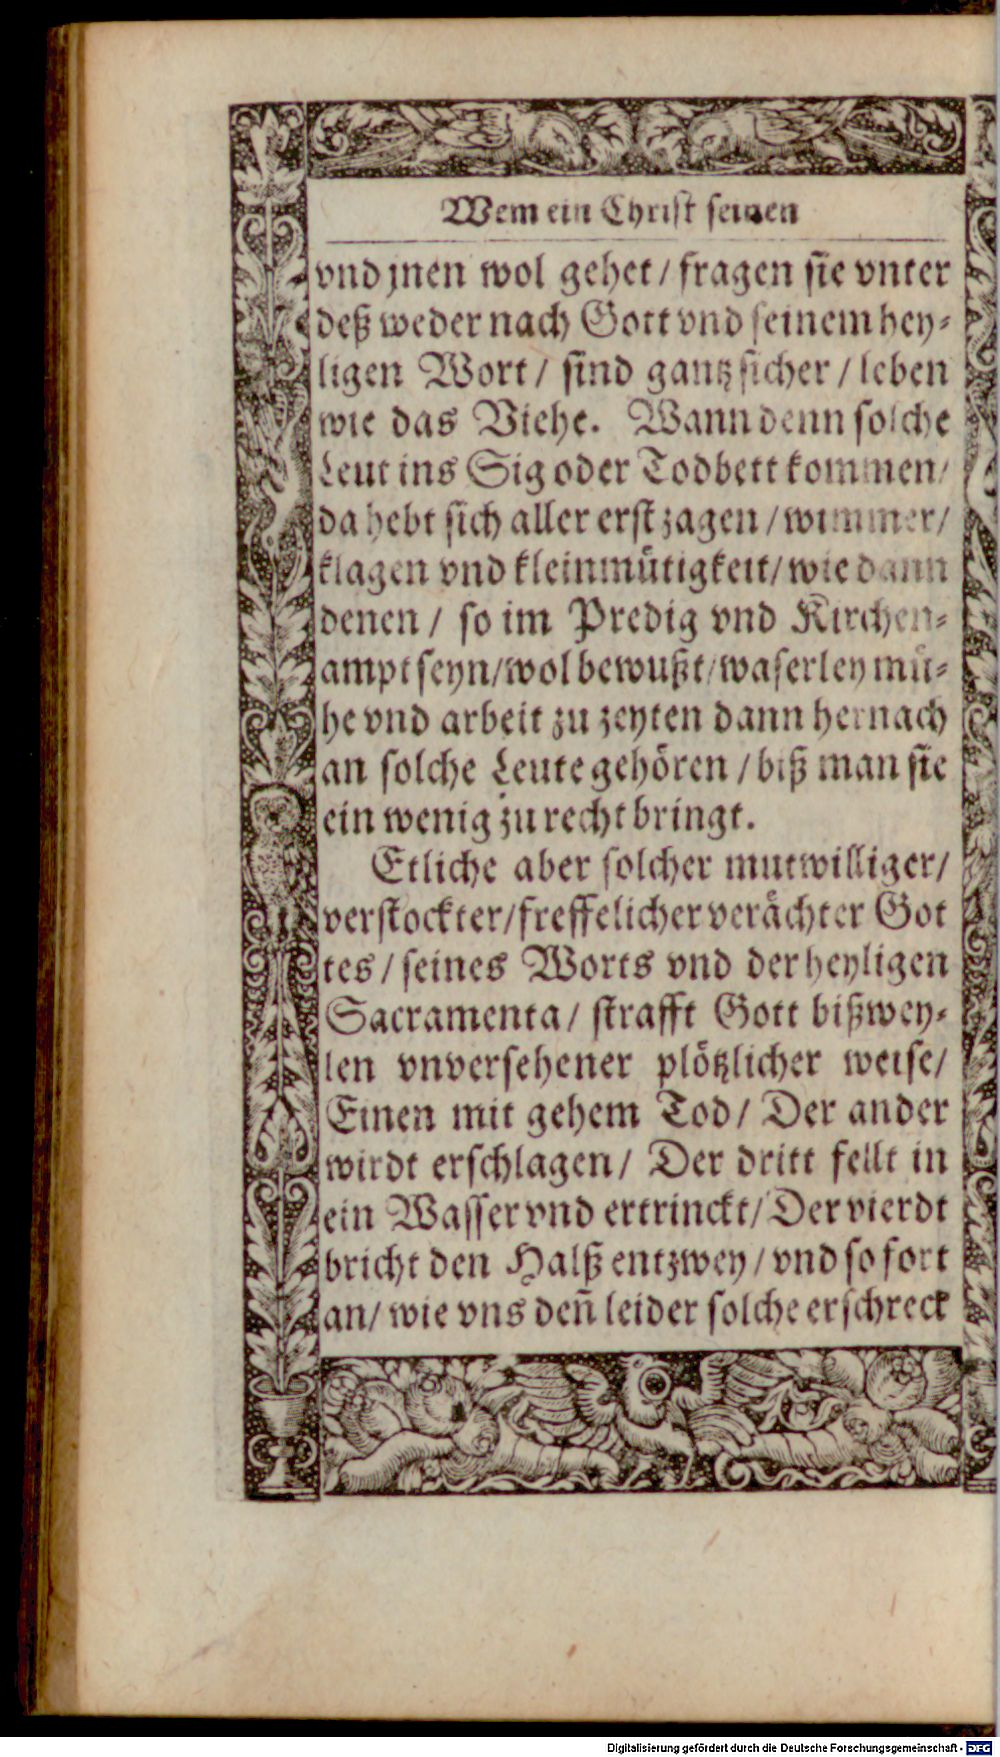 Wem ein Christ seinen
vnd jnen wol gehet / fragen sie vnter
deß weder nach Gott vnd seinem hey-
ligen Wort / sind gantz sicher / leben
wie das Viehe. Wann denn solche
Leut ins Sig oder Todbett kommen /
da hebt sich aller erst zagen / wimmer /
klagen vnd kleinmütigkeit / wie dann
denen / so im Predig vnd Kirchen-
ampt seyn / wol bewußt / waserley mü-
he vnd arbeit zu zeyten dann hernach
an solche Leute gehören / biß man sie
ein wenig zu recht bringt.
Etliche aber solcher mutwilliger /
verstockter / freffelicher verächter Got
tes / seines Worts vnd der heyligen
Sacramenta / strafft Gott bißwey-
len vnversehener plötzlicher weise /
Einen mit gehem Tod / Der ander
wirdt erschlagen / Der dritt fellt in
ein Wasser vnd ertrinckt / Der vierdt
bricht den Halß entzwey / vnd so fort
an / wie vns deñ leider solche erschreck
Digitalisierung gefördert durch die Deutsche Forschungsgemeinschaft - DFG